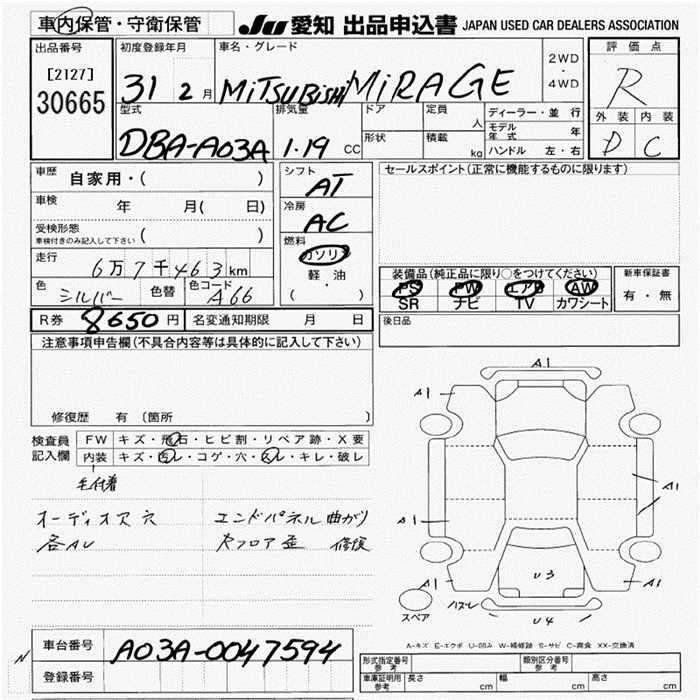 車内保管・守衛保管 JU 愛知 出品申込書 JAPAN USED CAR DEALERS ASSOCIATION
出品番号 [2127] 30665
初度登録年月 31 2月
車名・グレード MiTSUBiSHi MiRAGE
2WD・4WD
評価点 R
外装 内装
D C
型式 DBA-A03A
排気量 1.19 CC
ドア 形状
定員 人
積載 kg
ディーラー・並行
モデル年式 年
ハンドル 左・右
車歴 自家用・( )
車検 年 月( 日)
受検形態 車検付きのみ記入して下さい ( )
走行 6万7千463km
色 シルバー 色替 色コード A66
シフト AT
冷房 AC
燃料 ガソリン
軽油
( ・ )
セールスポイント(正常に機能するものに限ります)
装備品(純正品に限り○をつけてください)
PS PW エアB AW
SR ナビ TV カワシート
新車保証書 有・無
後日品
R券 8650円 名変通知期限 月 日
注意事項申告欄(不具合内容等は具体的に記入して下さい)
修復歴 有 〔箇所
検査員記入欄
FW キズ・飛石・ヒビ割・リペア跡・X要
内装 キズ・汚レ・コゲ・穴・スレ・キレ・破レ
毛付着
オーディオ穴 エンドパネル曲がり
各AU Rフロア歪 修復
A1
A1 A1
A1
A1
A1 U3 A1
ハズレ U4
スペア
A-キズ E-エクボ U-凹み W-補修跡 S-サビ C-腐食 XX-交換済
N
車台番号 A03A-0047594
登録番号
形式指定番号 参考 類別区分番号 参考
車庫証明用 参考 長さ cm 幅 cm 高さ cm